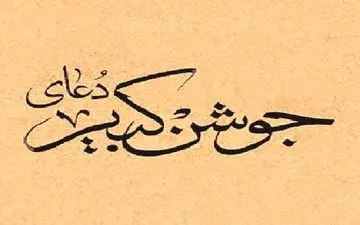 دُعای
جوشن کبیر